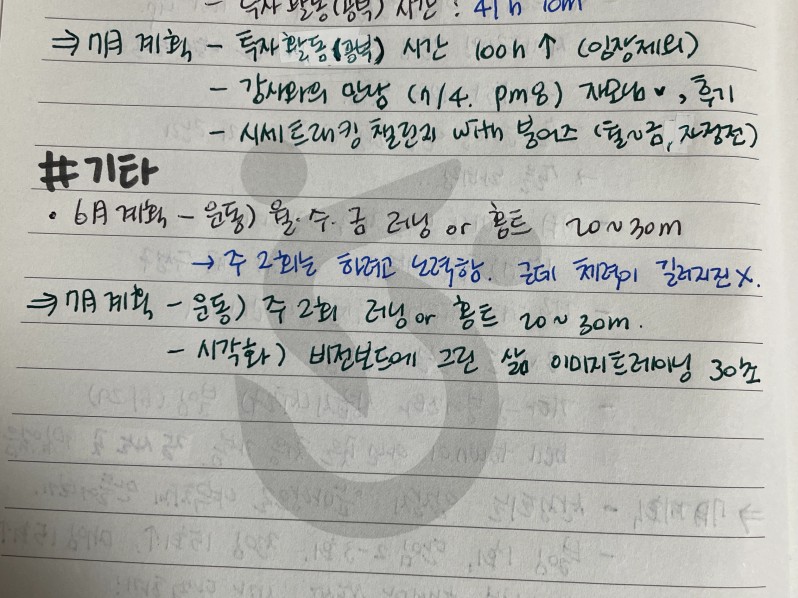 - 투자 활동(광복) 시간 : 41h 10m
⇒ 7月 계획 - 투자 활동(광복) 시간 100h ↑ (임장제외)
- 강사와의 만남 (7/4. pm8) 자모님 ♥, 후기
- 시세트래킹 챌린지 with 붕어즈 (월~금, 자정전)
#기타
• 6月 계획 - 운동) 월.수.금 러닝 or 홈트 20~30m
→ 주 2회는 하려고 노력함. 근데 체력이 길러지진 X.
⇒ 7月 계획 - 운동) 주 2회 러닝 or 홈트 20~30m.
- 시각화) 비전보드에 그린 삶 이미지트레이닝 30초